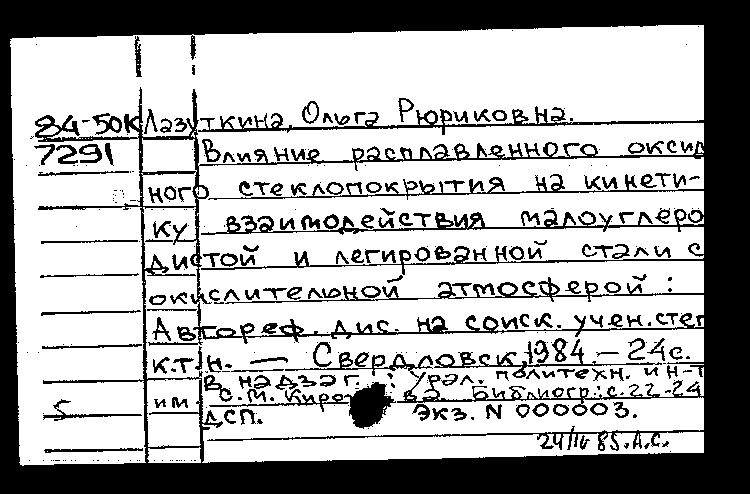 84-50К Лазуткина, Ольга Рюриковна.
7291 Влияние расплавленного оксид
ного стеклопокрытия на кинети-
ку взаимодействия малоуглеро
дистой и легированной стали с
окислительной атмосферой :
Автореф. дис. на соиск. учен. степ
к.т.н. — Свердловск, 1984. — 24с.
В надзаг. : Урал. политехн. ин-т
5 им. С.М. Киро ва. Библиогр.: с. 22-24
ДСП. Экз. N 000003.
85. А.С.